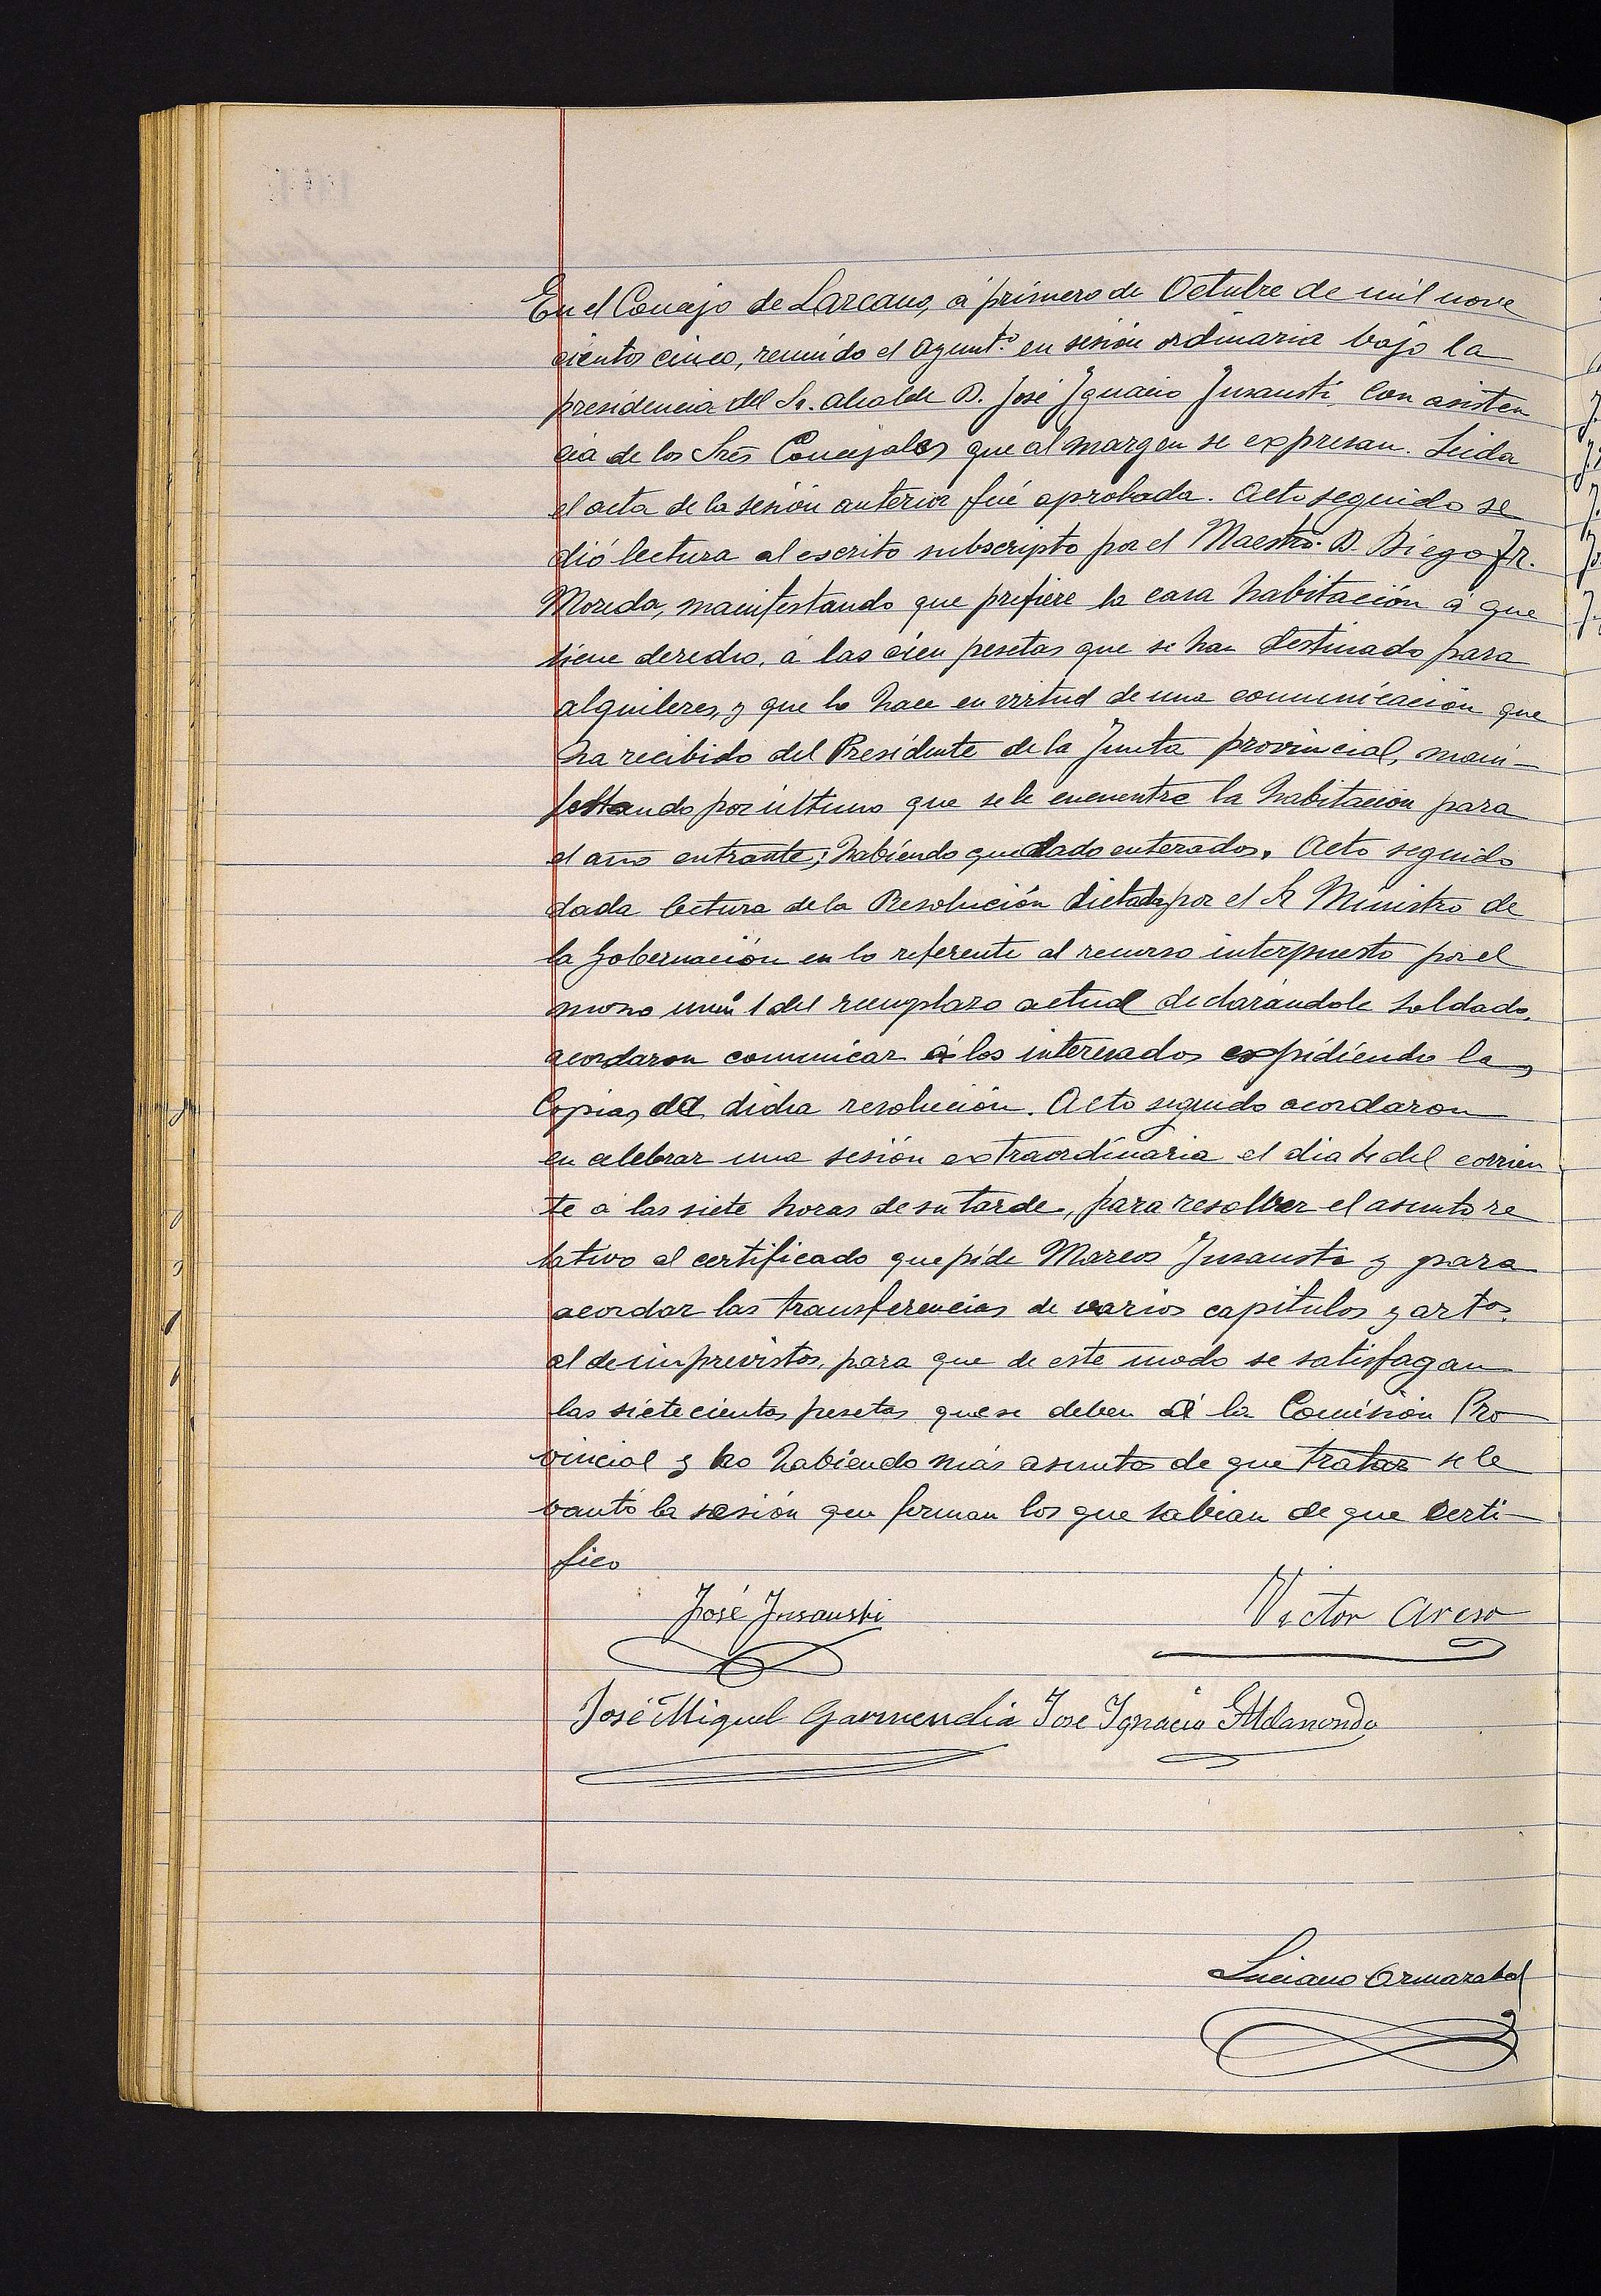 En el Concejo de Lazcano, á primero de Octubre de mil nove
cientos cinco, reunido el Ayunt.º en sesión ordinaria bajo la
presidencia del Sr. Alcalde D. José Ignacio Insausti, con asisten
cia de los Sres Concejales que al margen se expresan. Leida
el acta de la sesión anterior fué aprobada. Acto seguido se
dió lectura al escrito subscripto por el Maestro D. Diego Fr.
Moreda, manifestando que prefiere la casa habitación á que
tiene derecho, á las cien pesetas que se han destinado para
alquileres, y que lo hace en virtud de una comunicación que
ha recibido del Presidente de la Junta provincial, mani-
festando por último que se le encuentre la habitación para
el año entrante; habiendo quedado enterados. Acto seguido
dada lectura de la Resolución dictada por el Sr Ministro de
la Gobernación en lo referente al recurso interpuesto por el
mozo num 1 del reemplazo actual declarándole soldado,
acordaron comunicar á los interesados expidiendo las
Copias de dicha resolución. Acto seguido acordaron
en celebrar una sesión extraordinaria el dia del corrien
te á las siete horas de su tarde, para resolver el asunto re
lativo al certificado que pide Marcos Insausti y para
acordar las transferencias de varios capitulos y artos.
al de imprevistos, para que de este modo se satisfagan
las sietecientas pesetas que se deben á la Comisión Pro
vincial y no habiendo más asuntos de que tratar se le
vantó la sesión que firman los que sabian de que certi-
fico
José Insausti Victor Areso
José Miguel Garmendia José Ignacio Aldanondo
Luciano Ormazabal